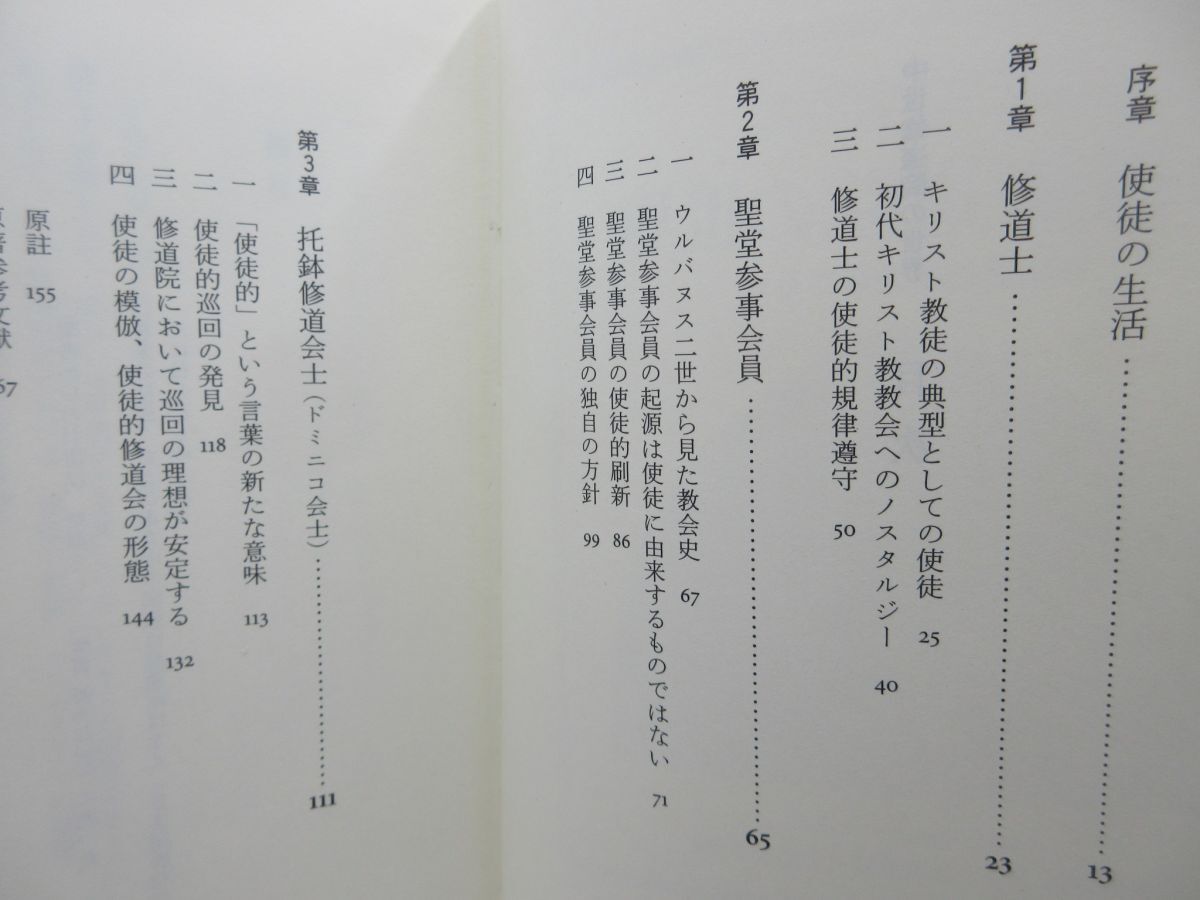 序章　使徒の生活 ……………… 13
第1章　修道士 ……………… 23
一　キリスト教徒の典型としての使徒　25
二　初代キリスト教教会へのノスタルジー　40
三　修道士の使徒的規律遵守　50
第2章　聖堂参事会員 ……………… 65
一　ウルバヌス二世から見た教会史　67
二　聖堂参事会員の起源は使徒に由来するものではない　71
三　聖堂参事会員の使徒的刷新　86
四　聖堂参事会員の独自の方針　99
第3章　托鉢修道会士（ドミニコ会士） ……………… 111
一　「使徒的」という言葉の新たな意味　113
二　使徒的巡回の発見　118
三　修道院において巡回の理想が安定する　132
四　使徒の模倣、使徒的修道会の形態　144
原註　155